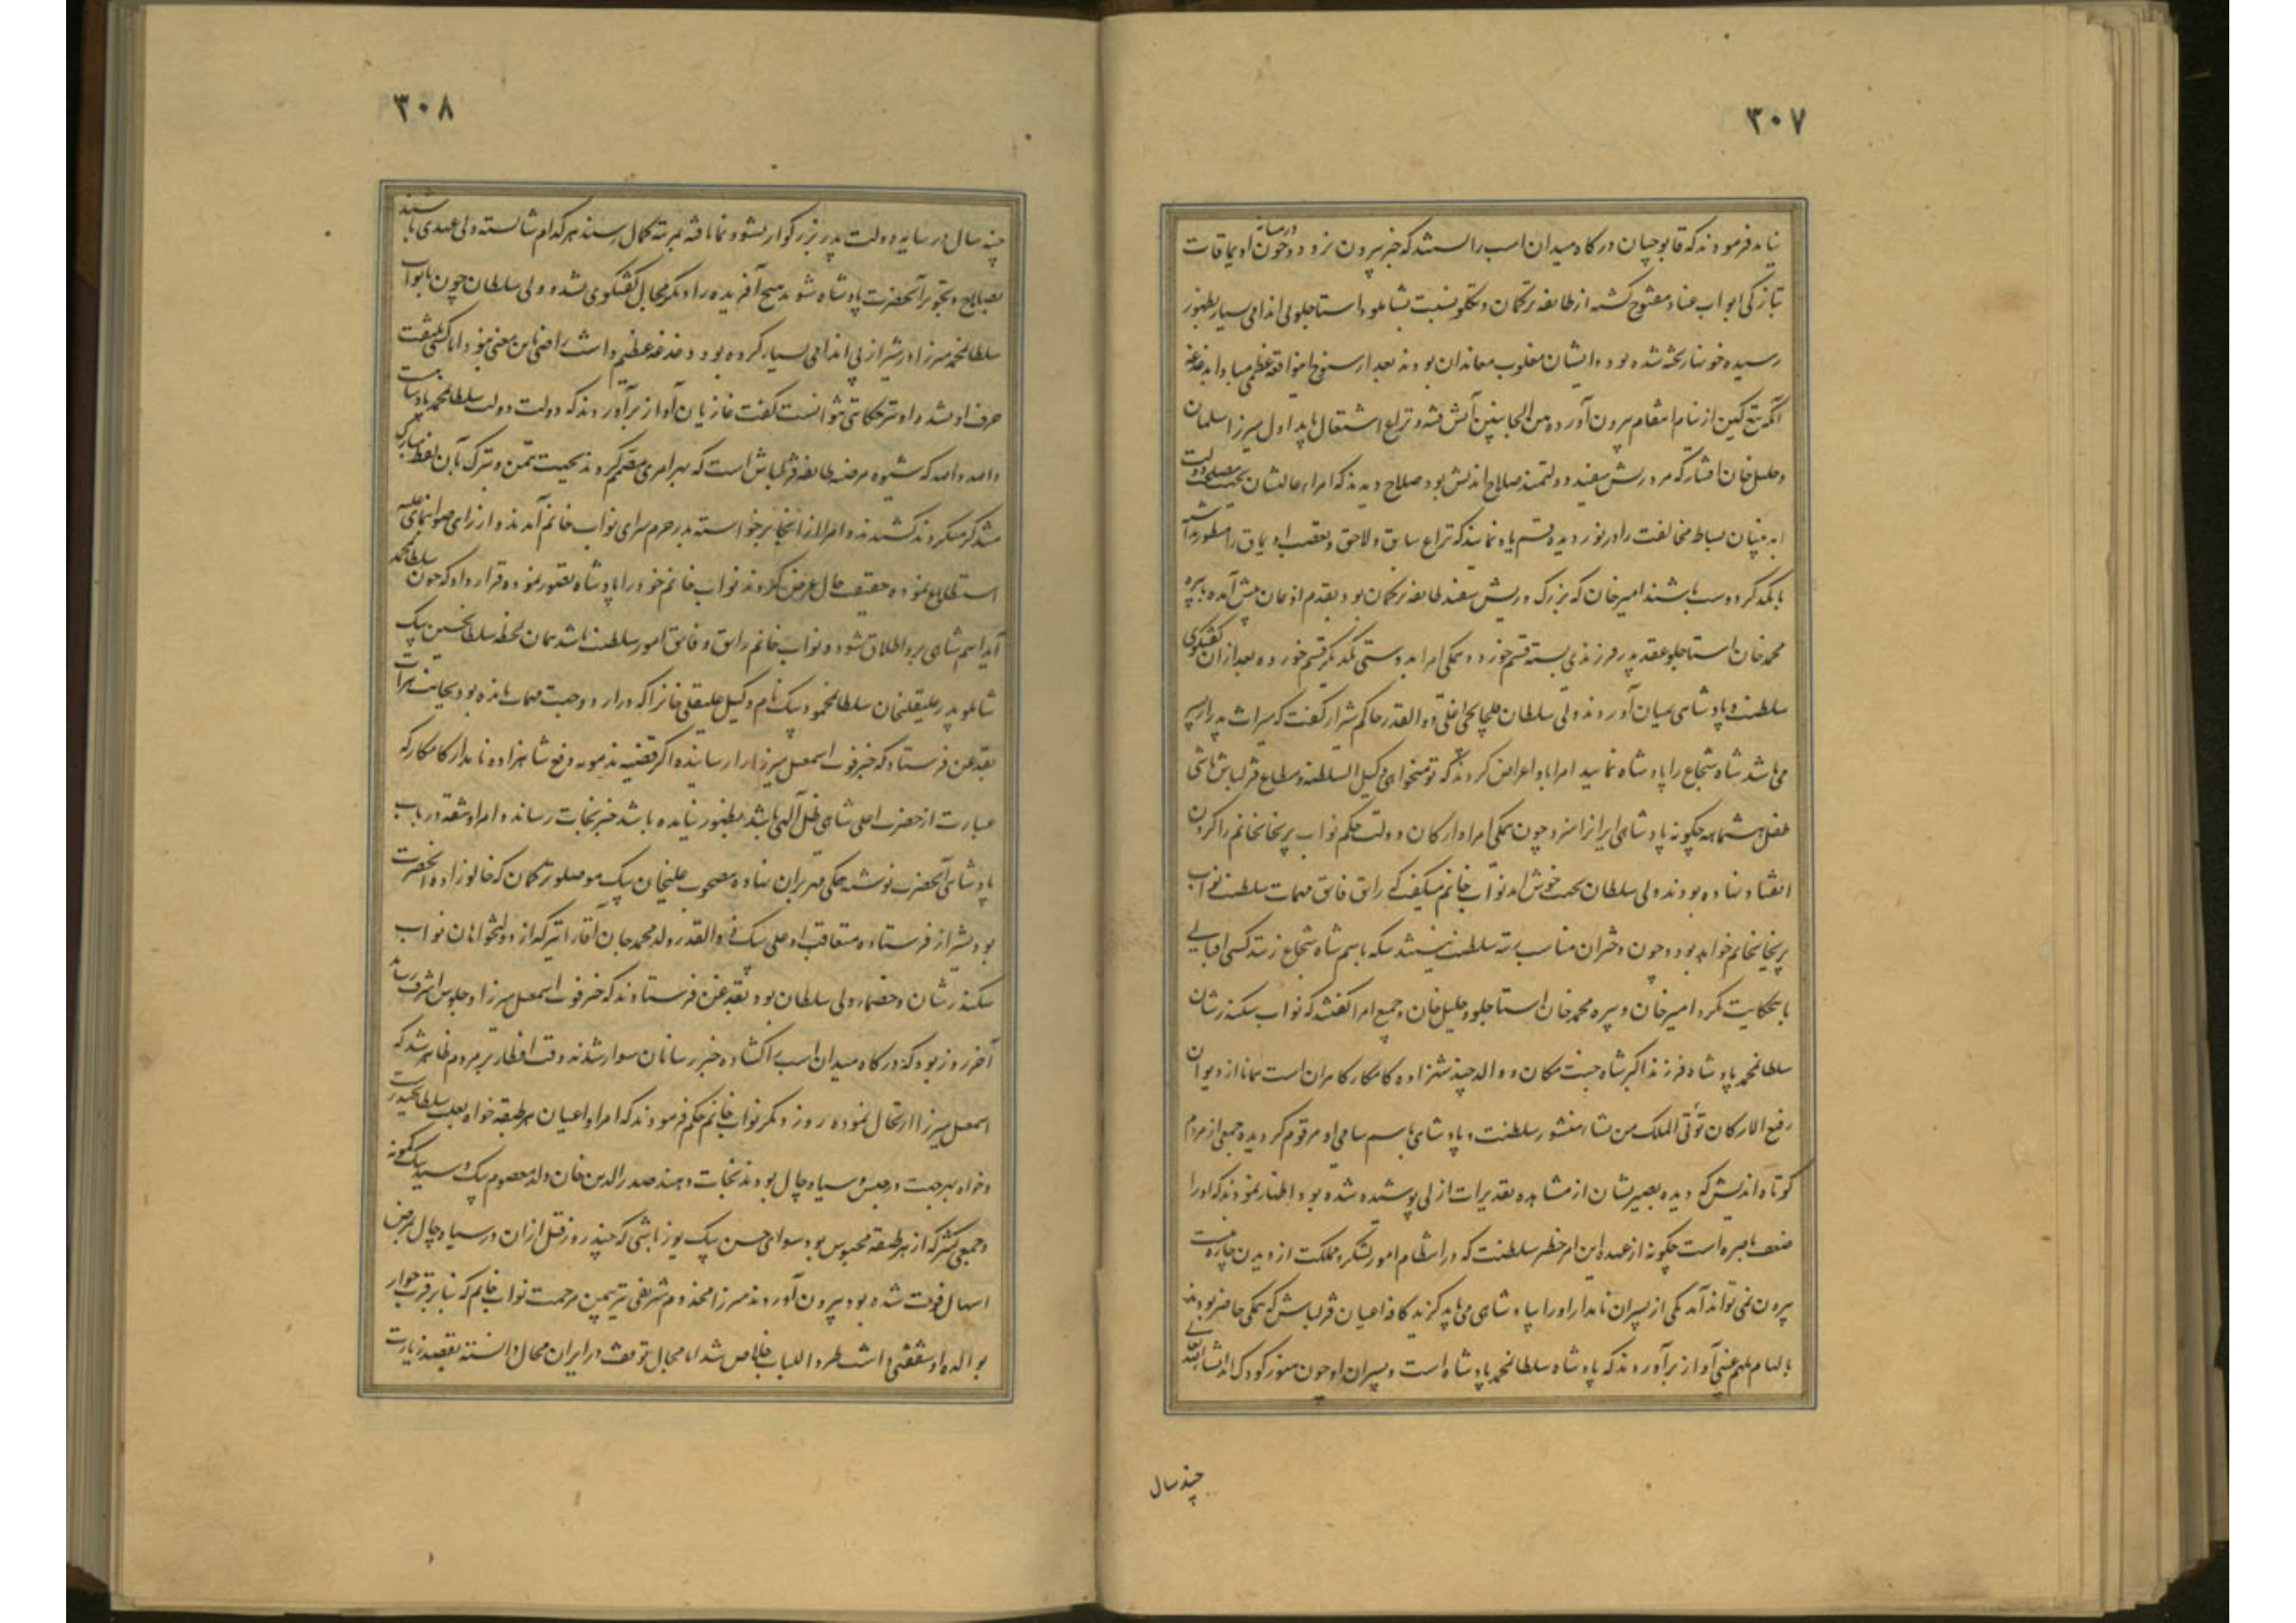 ۳۰۷
نیاید فرمودند که قاپوچیان درگاه میدان اسب را بستند که خبر بیرون نرود و چون در میانه اویماقات
بتازگی ابواب عناد مفتوح گشته از طایفه ترکمان و تکلو نسبت بشاملو و استاجلو بی اندامی بسیار بظهور
رسیده خونها ریخته شده بود و ایشان مغلوب معاندان بودند بعد از سنوح این واقعه عظمی مبادا بدغدغه
آنکه تیغ کین از نیام انتقام بیرون آورده من الجانبین آتش فتنه و نزاع اشتعال یابد اول میرزا سلمان
و خلیل خان افشار که مرد ریش سفید و دولتمند صلاح اندیش بود صلاح دیدند که امراء عالیشان بجهت مصلحت دولت
ابد بنیان بساط مخالفت را درنوردیده قسم یاد نمایند که نزاع سابق و لاحق و تعصب اویماق را منظور نداشته
با یکدیگر دوست باشند امیر خان که بزرگ و ریش سفید طایفه ترکمان بود بقدم اذعان پیش آمده با پیره
محمد خان استاجلو عقد پدر فرزندی بسته قسم خورد و همگی امرا بدوستی یکدیگر قسم خورده بعد از آن گفتگوی
سلطنت و پادشاهی بمیان آوردند ولی سلطان قلیخانچی اغلی ذوالقدر حاکم شیراز گفت که میراث پدر از پسر
می باشد شاه شجاع را پادشاه نمایید امرا باو اعراض کردند که تو میخواهی وکیل السلطنه و مطاع قزلباش باشی
طفل هشت ماهه چگونه پادشاهی ایران را سزد چون همگی امرا و ارکان دولت حکم نواب پریخان خانم را گردن
انقیاد نهاده بودند ولی سلطان بجهت خوش آمد نواب خانم میگفت که راتق فاتق مهمات سلطنت نواب
پریخان خانم خواهد بود و چون دختران مناسب رتبه سلطنت نیستند سکه باسم شاه شجاع زنند کسی اقبالی
باین حکایت نکرد امیر خان و پیره محمد خان استاجلو و خلیل خان و جمیع امرا گفتند که نواب سکندر شان
سلطان محمد پادشاه فرزند اکبر شاه جنت مکان و والد چند شهزاده کامکار کامران است همانا از دیوان
رفیع الارکان تؤتی الملک من تشاء منشور سلطنت و پادشاهی باسم سامی او مرقوم گردیده جمعی از مردم
کوتاه اندیش که دیده بصیرتشان از مشاهده تقدیرات ازلی پوشیده شده بود اظهار نمودند که او را
ضعف باصره است چگونه از عهده این امر خطیر سلطنت که در انتظام امور لشکر و مملکت از دیدن چاره نیست
بیرون می تواند آمد یکی از پسران نامدار او را بپادشاهی می باید گزید کافه اعیان قزلباش که همگی حاضر بودند
بالهام ملهم غیبی آواز برآوردند که پادشاه سلطان محمد پادشاه است و پسران او چون هنوز کودک اند انشاءالله تعالی
چند سال
۳۰۸
چند سال در سایه دولت پدر بزرگوار نشو و نما یافته بمرتبه کمال رسند هر کدام شایسته ولی عهدی باشند
بصلاح و تجویز آنحضرت پادشاه شوند هیچ آفریده را دیگر مجال گفتگوی نشد و ولی سلطان چون با نواب
سلطان محمد میرزا در شیراز بی اندامی بسیار کرده بود و دغدغه عظیم داشت راضی باین معنی نبود اما کسی ملتفت
حرف او نشد و او نیز حکایتی نتوانست گفت غازیان آواز برآوردند که دولت دولت سلطان محمد پادشاست
و الله الله که شیوه مرضیه طایفه قزلباش است که بهر امری مصمم گردند بجهت تیمن و تبرک بآن لفظ مبارک
متذکر میگردند کشیدند و امرا از آنجا برخواسته بدر حرم سرای نواب خانم آمدند و از رای صوابنمای علیه
استطلاع نموده حقیقت حال عرض کردند نواب خانم خود را پادشاه تصور نموده قرار داد که چون سلطان محمد
آید اسم شاهی برو اطلاق شود و نواب خانم راتق و فاتق امور سلطنت باشد همان لحظه سلطان حسین بیک
شاملو پدر علیقلی خان سلطان محمود بیک نام وکیل علیقلی خان را که در اردو جهت مهمات مانده بود بجانب هرات
بقدغن فرستاد که خبر فوت اسمعیل میرزا را رسانیده اگر قضیه نامرضیه دفع شاهزاده نامدار کامکار که
عبارت از حضرت اعلی شاهی ظل اللهی باشد بظهور نیامده باشد خبر نجات رساند و امرا وثیقه در باب
پادشاهی آنحضرت نوشته همگی مهر بران نهاده مصحوب علیخان بیک موصلو ترکمان که خالو زاده آنحضرت
بود بشیراز فرستاده متعاقب او علی بیک ذوالقدر ولد محمد جان آقا را نیز که از دولتخواهان نواب
سکندر شان و خصمان ولی سلطان بود بقدغن فرستادند که خبر فوت اسمعیل میرزا و جلوس اشرف رساند
آخر روز بود که درگاه میدان اسب را گشاده خبر رسانان سوار شدند وقت افطار بر مردم ظاهر شد که
اسمعیل میرزا ارتحال نموده روز دیگر نواب خانم حکم فرمودند که امرا و اعیان هر طبقه خواه بعلت سلطان حیدریت
و خواه بهر جهت در حبس و سیاه چال بودند نجات دهند صدرالدین خان ولد معصوم بیک و سید بیک کمونه
و جمعی کثیر که از هر طبقه محبوس بود سوای حسن بیک یوزباشی که چند روز قبل از آن در سیاه چال بمرض
اسهال فوت شده بود بیرون آوردند میرزا مخدوم شریفی نیز بیمن مرحمت نواب خانم که بنابر قرب جوار
بوالده او شفقتی داشت طرداً للباب خلاص شد اما مجال توقف در ایران محال دانسته بقصد زیارت